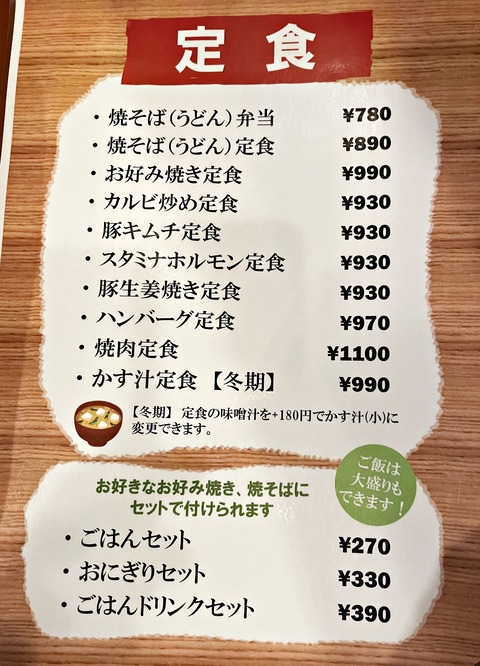 定食
・焼そば(うどん)弁当 ¥780
・焼そば(うどん)定食 ¥890
・お好み焼き定食 ¥990
・カルビ炒め定食 ¥930
・豚キムチ定食 ¥930
・スタミナホルモン定食 ¥930
・豚生姜焼き定食 ¥930
・ハンバーグ定食 ¥970
・焼肉定食 ¥1100
・かす汁定食【冬期】 ¥990
【冬期】 定食の味噌汁を+180円でかす汁(小)に
変更できます。
ご飯は
大盛りも
できます!
お好きなお好み焼き、焼そばに
セットで付けられます
・ごはんセット ¥270
・おにぎりセット ¥330
・ごはんドリンクセット ¥390